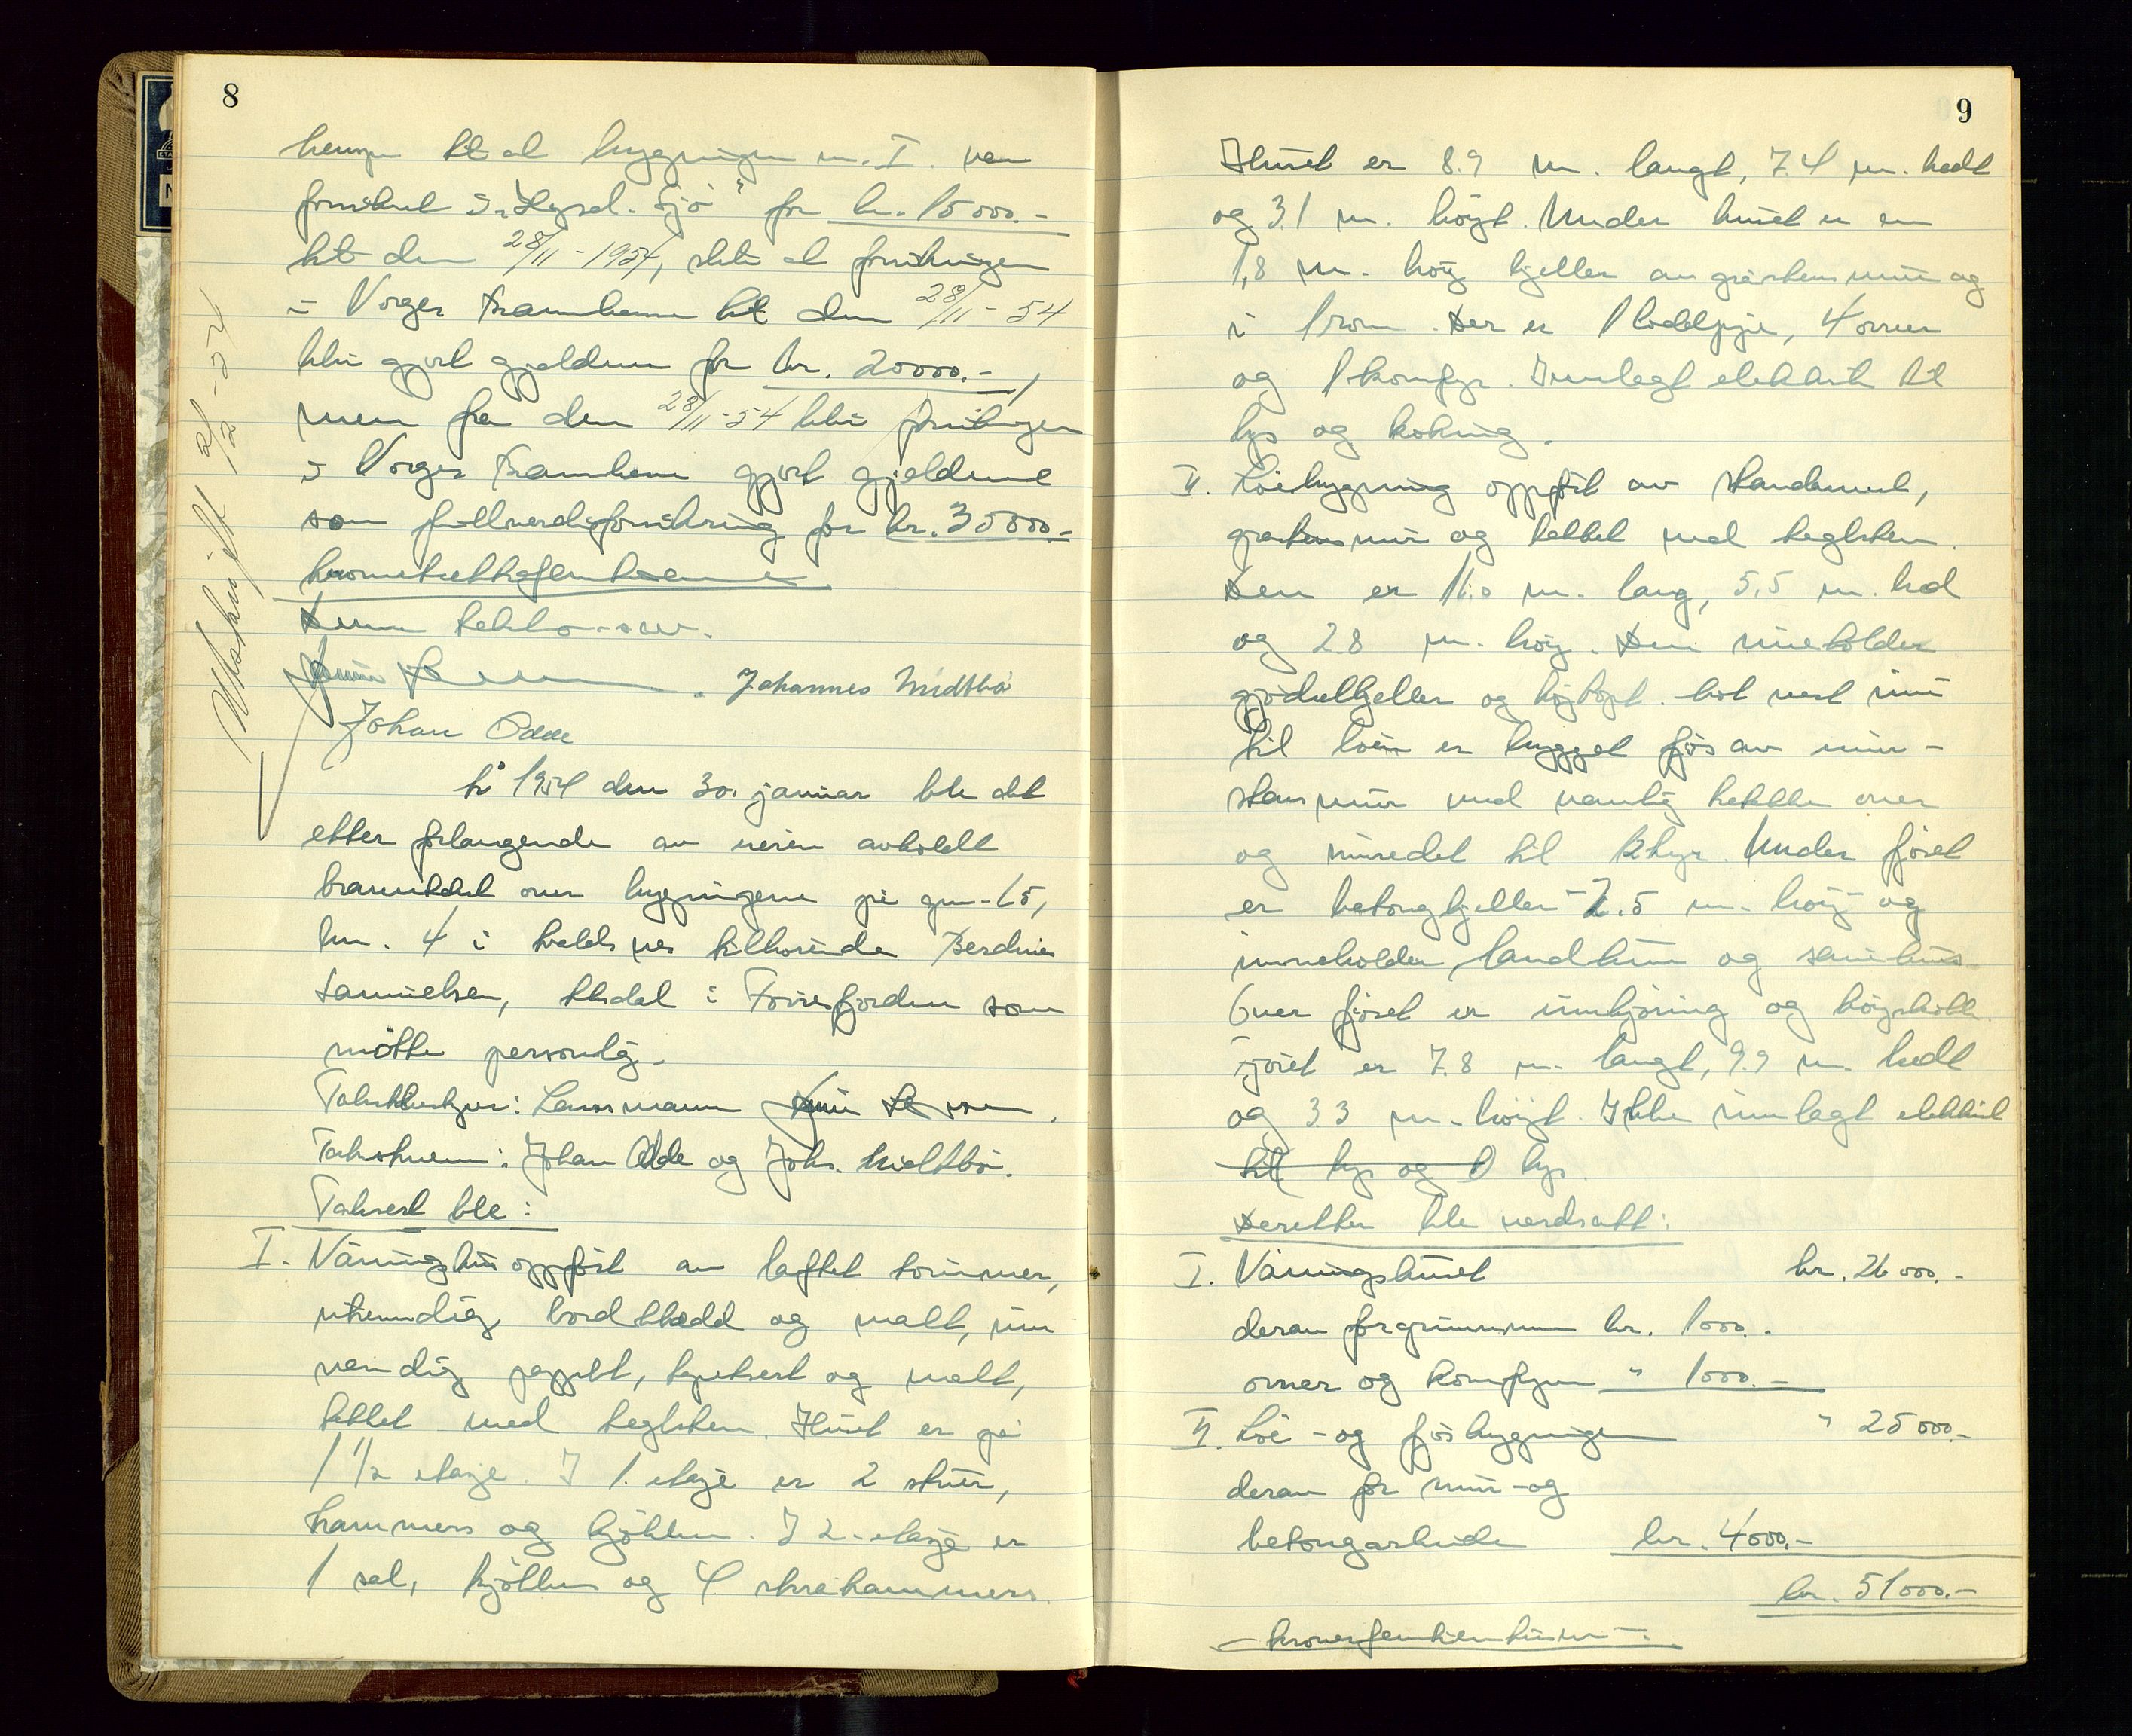 8
hensyn til at bygningen nr. I. var
forsikret i "Tysvl. Sjø" for kr. 15000.-
til den 28/11-1954, slik at forsikringen
i Norges Brannkasse til den 28/11-54
blir gjort gjeldene for kr. 20000.-,
men fra den 28/11-54 blir forsikringen
i Norges Brannkasse gjort gjeldene
som fullverdiforsikring for kr. 35000.-
kronertrettifemtusen
Denne takst
Johannes Midtbø
Johan Odde
Utskrift 2/2-54
År 1954 den 30. januar ble det
etter forlangende av eieren avholdt
branntakst over bygningene på gnr. 15,
bnr. 4 i tilhørende Berdines
Samuelsen, i Førresfjorden som
møtte personlig.
Takstbestyrer: Lensmann
Takstmenn: Johan Odde og Johs. Midtbø.
Taksert ble:
I. Våningshus oppført av laftet tømmer,
utvendig bordkledd og malt, inn
vendig pappet, tapetsert og malt,
tekket med teglsten. Huset er på
1 1/2 etasje. I 1. etasje er 2 stuer,
kammers og kjøkken. I 2. etasje er
1 sal, kjøkken og 4 skråkammers.
9
Huset er 8.9 m. langt, 7.4 m. bredt
og 3.1 m. høyt. Under huset er en
1,8 m. høy kjeller av gråstensmur og
i 1 rom. Der er 1 loddpipe, 4 ovner
og 1 komfyr. Innlagt elektrik til
lys og koking.
II. Løebygning oppført av standerverk,
gråstensmur og tekket med teglsten.
Den er 11.0 m. lang, 5,5 m. bred
og 2.8 m. høy. Den inneholder
gjødselkjeller og høytopt. Mot vest inn
til løen er bygget fjøs av mur-
stensmur med vanlig tekke over
og innredet til 12 kyr. Under fjøset
er betongkjeller - 2.5 m. høy og
inneholder landkum og sauehus.
Over fjøset er innkjøring og høyskolle.
Fjøset er 7.8 m. langt, 9.9 m. bredt
og 3.3 m. høyt. Ikke innlagt elektrik
til lys og lys.
Deretter ble verdsatt:
I. Våningshuset kr. 26000.-
derav for grunnmur kr. 1000.-
ovner og komfyren " 1000.-
II. Løe- og fjøsbygningen " 25000.-
derav for mur- og
betongarbeide kr. 4000.-
kr. 51000.-
- kronerfemtientusen -.